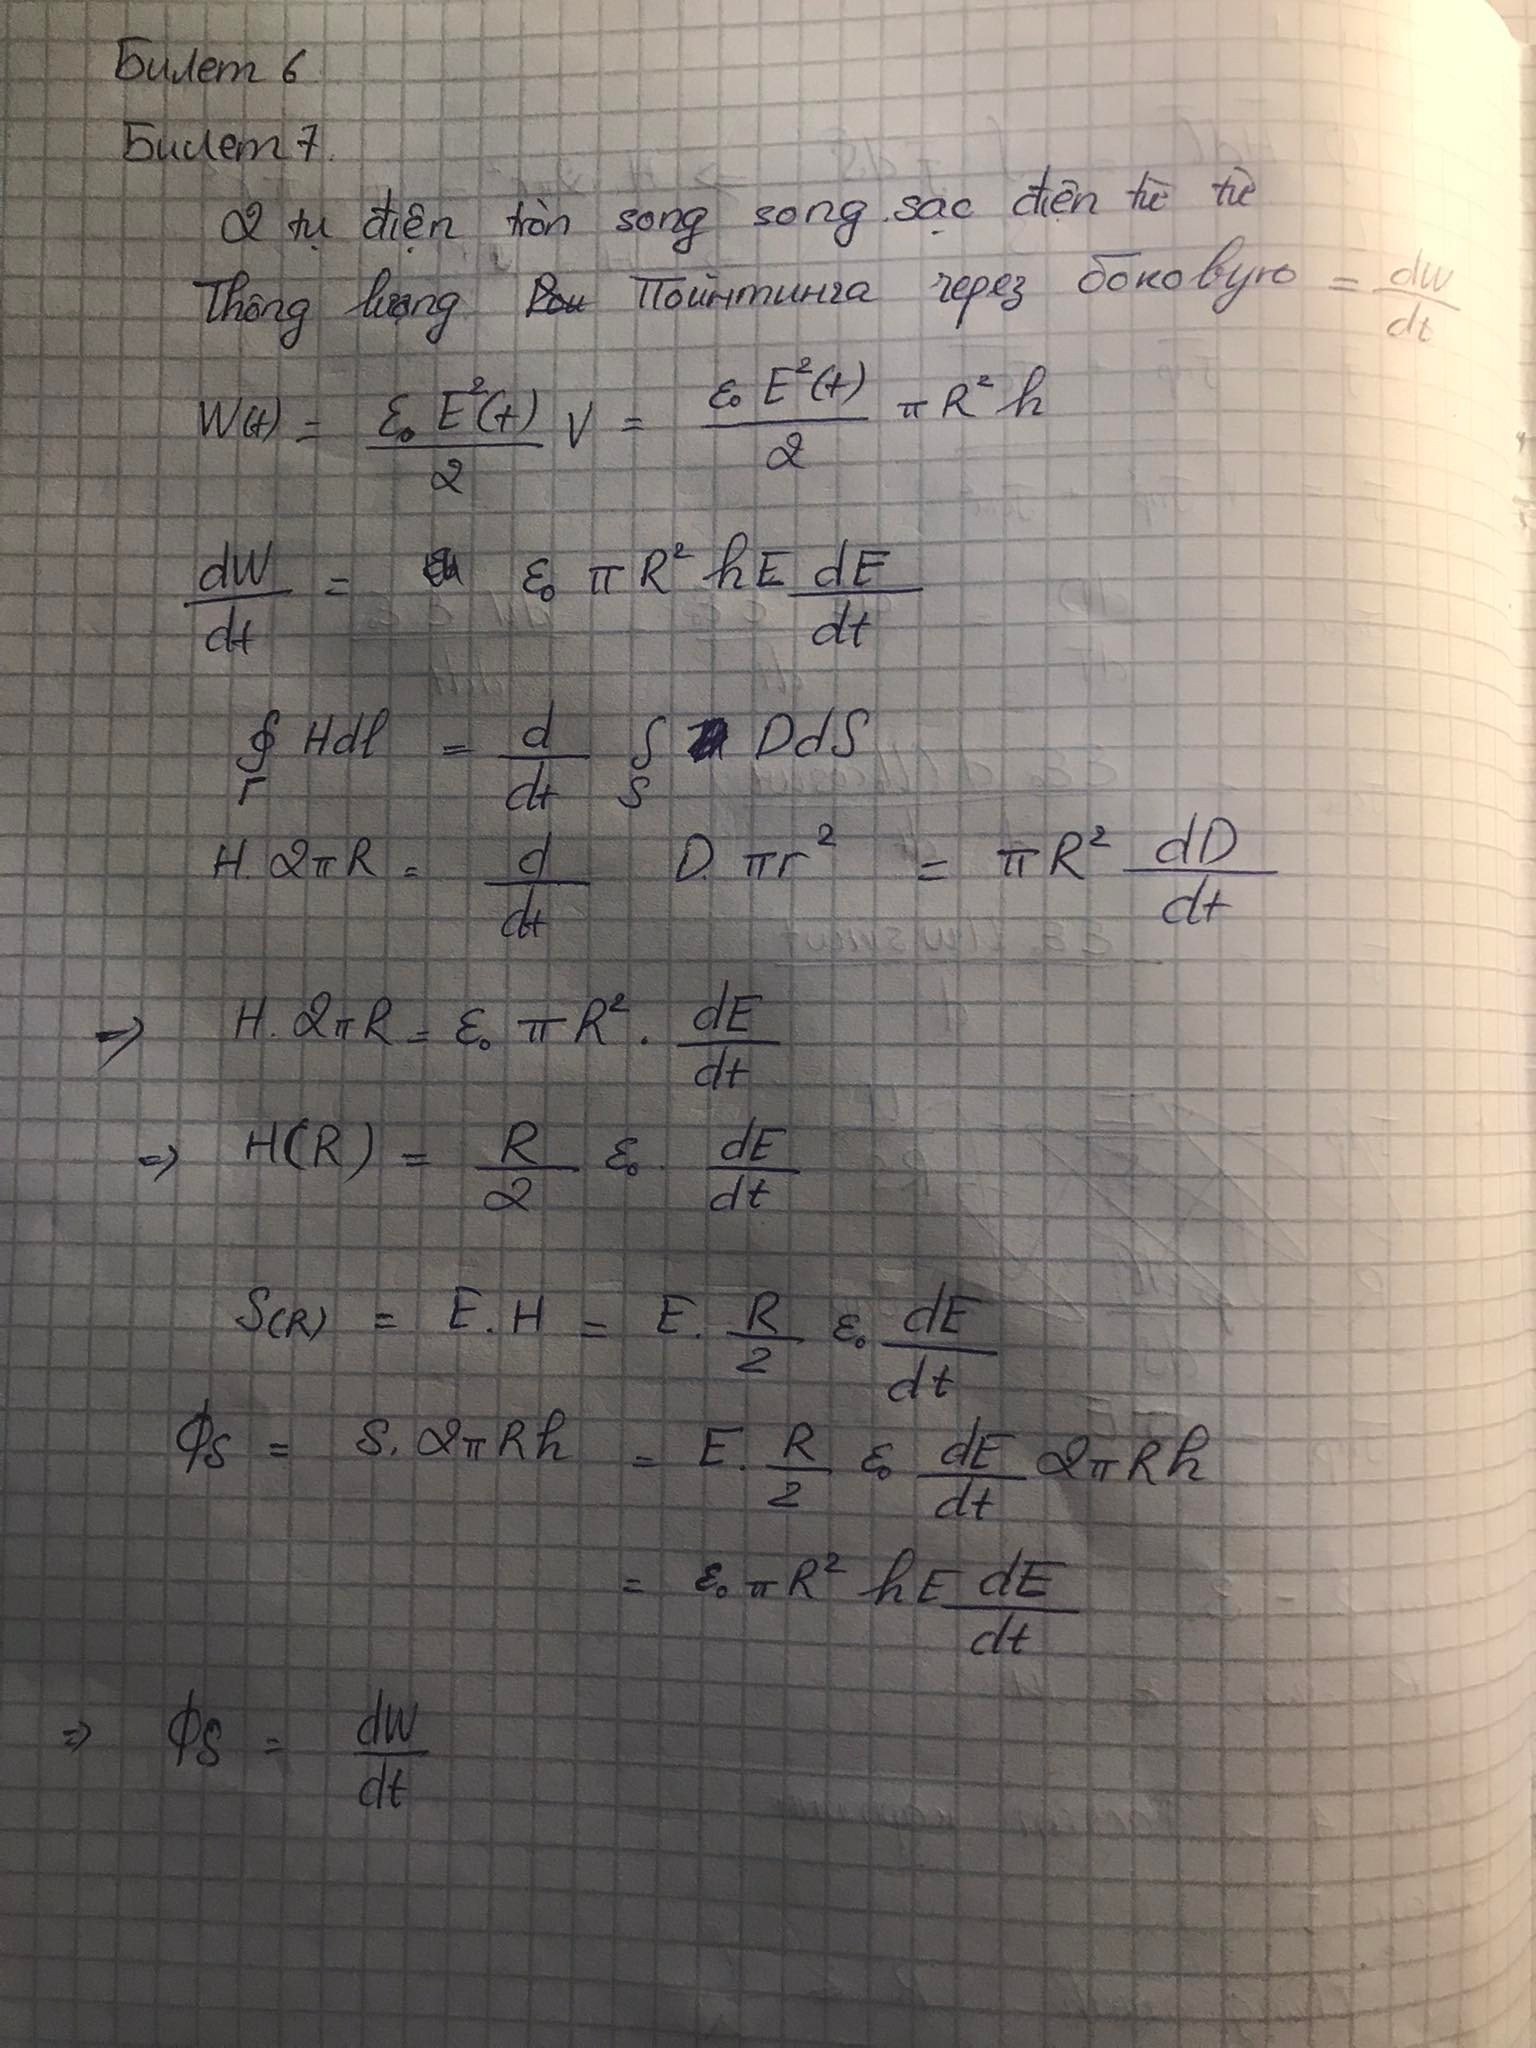 Билет 6
Билет 7.
2 tụ điện tròn song song sạc điện từ từ
Thông lượng Пойнтинга через боковую = dW/dt
W(t) = ε₀ E²(t)/2 V = ε₀ E²(t)/2 π R² h
dW/dt = ε₀ π R² h E dE/dt
∮_Γ H dl = d/dt ∫_S D dS
H. 2πR = d/dt D. πr² = πR² dD/dt
⇒ H. 2πR = ε₀ πR². dE/dt
⇒ H(R) = R/2 ε₀ dE/dt
S(R) = E. H = E. R/2 ε₀ dE/dt
ϕ_S = S. 2πRh = E. R/2 ε₀ dE/dt 2πRh
= ε₀ πR² h E dE/dt
⇒ ϕ_S = dW/dt